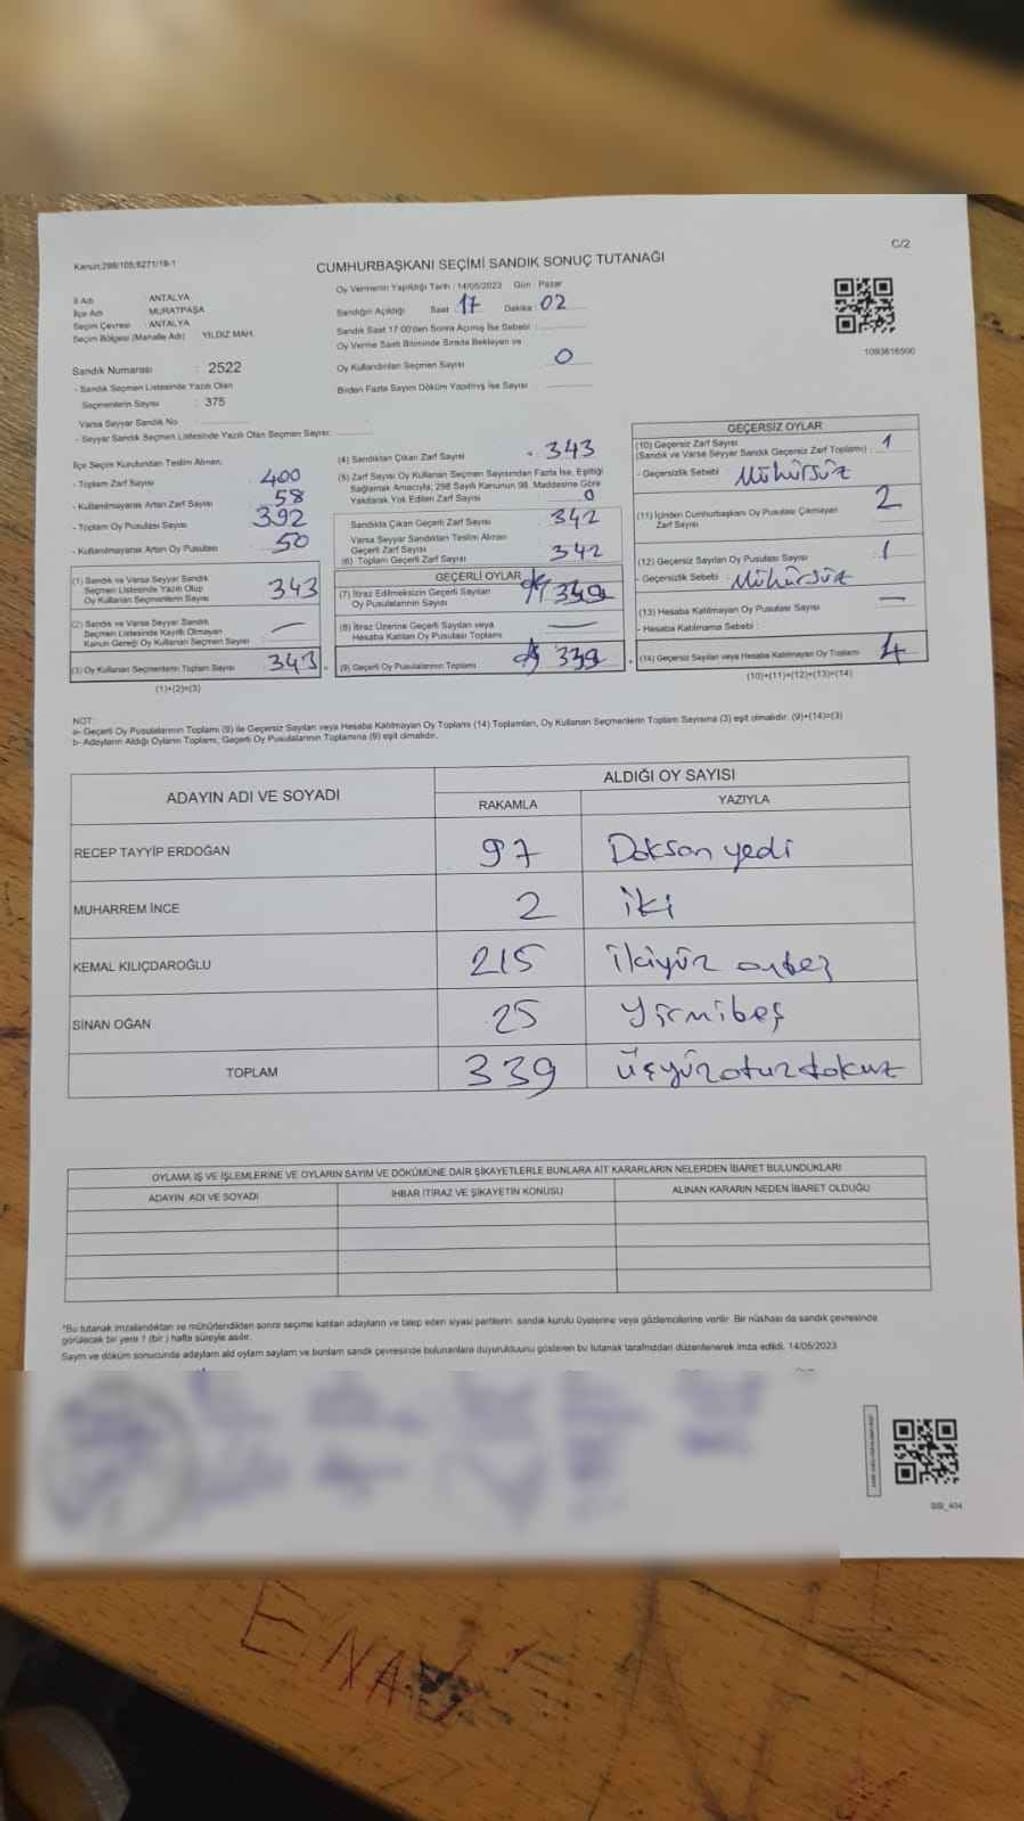 C/2
Kanun:298/105,6271/19-1
CUMHURBAŞKANI SEÇİMİ SANDIK SONUÇ TUTANAĞI
İl Adı ANTALYA
İlçe Adı MURATPAŞA
Seçim Çevresi ANTALYA
Seçim Bölgesi (Mahalle Adı) YILDIZ MAH.
Sandık Numarası : 2522
- Sandık Seçmen Listesinde Yazılı Olan
Seçmenlerin Sayısı : 375
Varsa Seyyar Sandık No
- Seyyar Sandık Seçmen Listesinde Yazılı Olan Seçmen Sayısı:
Oy Vermenin Yapıldığı Tarih : 14/05/2023 Gün : Pazar
Sandığın Açıldığı Saat 17 Dakika 02
Sandık Saat 17:00'den Sonra Açılmış İse Sebebi :
Oy Verme Saati Bitiminde Sırada Bekleyen ve
Oy Kullandırılan Seçmen Sayısı 0
Birden Fazla Sayım Döküm Yapılmış İse Sayısı
1093616500
İlçe Seçim Kurulundan Teslim Alınan:
- Toplam Zarf Sayısı 400
- Kullanılmayarak Artan Zarf Sayısı 58
- Toplam Oy Pusulası Sayısı 392
- Kullanılmayarak Artan Oy Pusulası 50
(1) Sandık ve Varsa Seyyar Sandık
Seçmen Listesinde Yazılı Olup
Oy Kullanan Seçmenlerin Sayısı 343
(2) Sandık ve Varsa Seyyar Sandık
Seçmen Listesinde Kayıtlı Olmayan
Kanun Gereği Oy Kullanan Seçmen Sayısı —
(3) Oy Kullanan Seçmenlerin Toplam Sayısı 343
(1)+(2)=(3)
(4) Sandıktan Çıkan Zarf Sayısı 343
(5) Zarf Sayısı Oy Kullanan Seçmen Sayısından Fazla İse, Eşitliği
Sağlamak Amacıyla, 298 Sayılı Kanunun 98. Maddesine Göre
Yakılarak Yok Edilen Zarf Sayısı 0
Sandıkta Çıkan Geçerli Zarf Sayısı 342
Varsa Seyyar Sandıktan Teslim Alınan
Geçerli Zarf Sayısı
(6) Toplam Geçerli Zarf Sayısı 342
GEÇERLİ OYLAR
(7) İtiraz Edilmeksizin Geçerli Sayılan
Oy Pusulalarının Sayısı 339
(8) İtiraz Üzerine Geçerli Sayılan veya
Hesaba Katılan Oy Pusulası Toplamı —
(9) Geçerli Oy Pusulalarının Toplamı 339
GEÇERSİZ OYLAR
(10) Geçersiz Zarf Sayısı
(Sandık ve Varsa Seyyar Sandık Geçersiz Zarf Toplamı) : 1
- Geçersizlik Sebebi Mühürsüz
(11) İçinden Cumhurbaşkanı Oy Pusulası Çıkmayan
Zarf Sayısı 2
(12) Geçersiz Sayılan Oy Pusulası Sayısı 1
- Geçersizlik Sebebi Mühürsüz
(13) Hesaba Katılmayan Oy Pusulası Sayısı —
- Hesaba Katılmama Sebebi :
(14) Geçersiz Sayılan veya Hesaba Katılmayan Oy Toplamı 4
(10)+(11)+(12)+(13)=(14)
NOT:
a- Geçerli Oy Pusulalarının Toplamı (9) ile Geçersiz Sayılan veya Hesaba Katılmayan Oy Toplamı (14) Toplamları, Oy Kullanan Seçmenlerin Toplam Sayısına (3) eşit olmalıdır. (9)+(14)=(3)
b- Adayların Aldığı Oyların Toplamı, Geçerli Oy Pusulalarının Toplamına (9) eşit olmalıdır.
ADAYIN ADI VE SOYADI
ALDIĞI OY SAYISI
RAKAMLA YAZIYLA
RECEP TAYYİP ERDOĞAN 97 Doksan yedi
MUHARREM İNCE 2 iki
KEMAL KILIÇDAROĞLU 215 ikiyüz onbeş
SİNAN OĞAN 25 Yirmibeş
TOPLAM 339 üçyüzotuzdokuz
OYLAMA İŞ VE İŞLEMLERİNE VE OYLARIN SAYIM VE DÖKÜMÜNE DAİR ŞİKAYETLERLE BUNLARA AİT KARARLARIN NELERDEN İBARET BULUNDUKLARI
ADAYIN ADI VE SOYADI İHBAR İTİRAZ VE ŞİKAYETİN KONUSU ALINAN KARARIN NEDEN İBARET OLDUĞU
*Bu tutanak imzalandıktan ve mühürlendikten sonra seçime katılan adayların ve talep eden siyasi partilerin, sandık kurulu üyelerine veya gözlemcilerine verilir. Bir nüshası da sandık çevresinde
görülecek bir yere 1 (bir ) hafta süreyle asılır.
Sayım ve döküm sonucunda adayların aldı oyların sayıları ve bunların sandık çevresinde bulunanlara duyurulduunu gösteren bu tutanak tarafımızdan düzenlenerek imza edildi. 14/05/2023
ENA